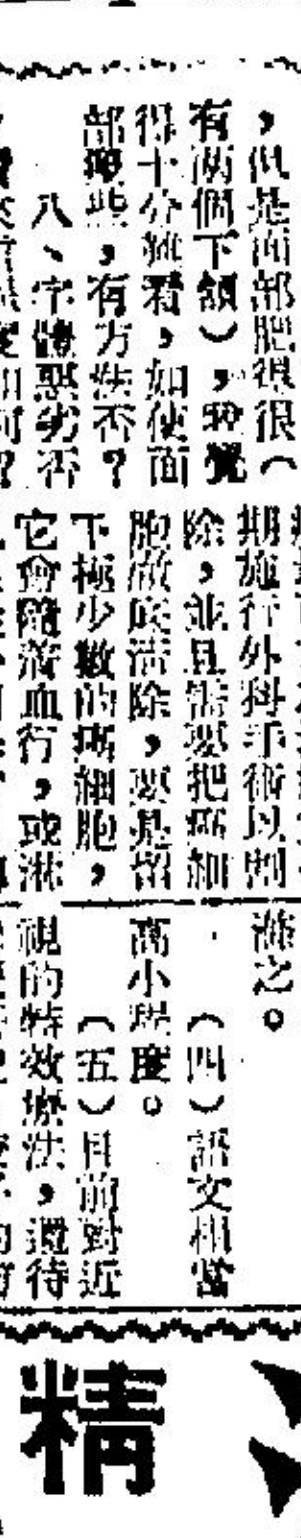 ，但是面部肥得很（
有兩個下頷），致覺
得十分難看，如使面
部瘦些，有方法否？
八、字體惡劣否
期施行外科手術以割
除，並且需要把癌細
胞澈底清除，要是留
下極少數的癌細胞，
它會隨着血行，或淋
漸之。
（四）語文相當
高小程度。
（五）目前對近
視的特效療法，還待
精